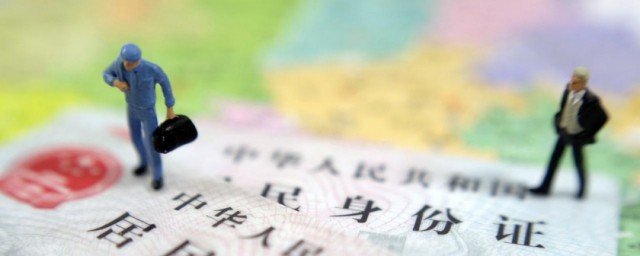 中华人民共和国
民身份证
中华人民
居民